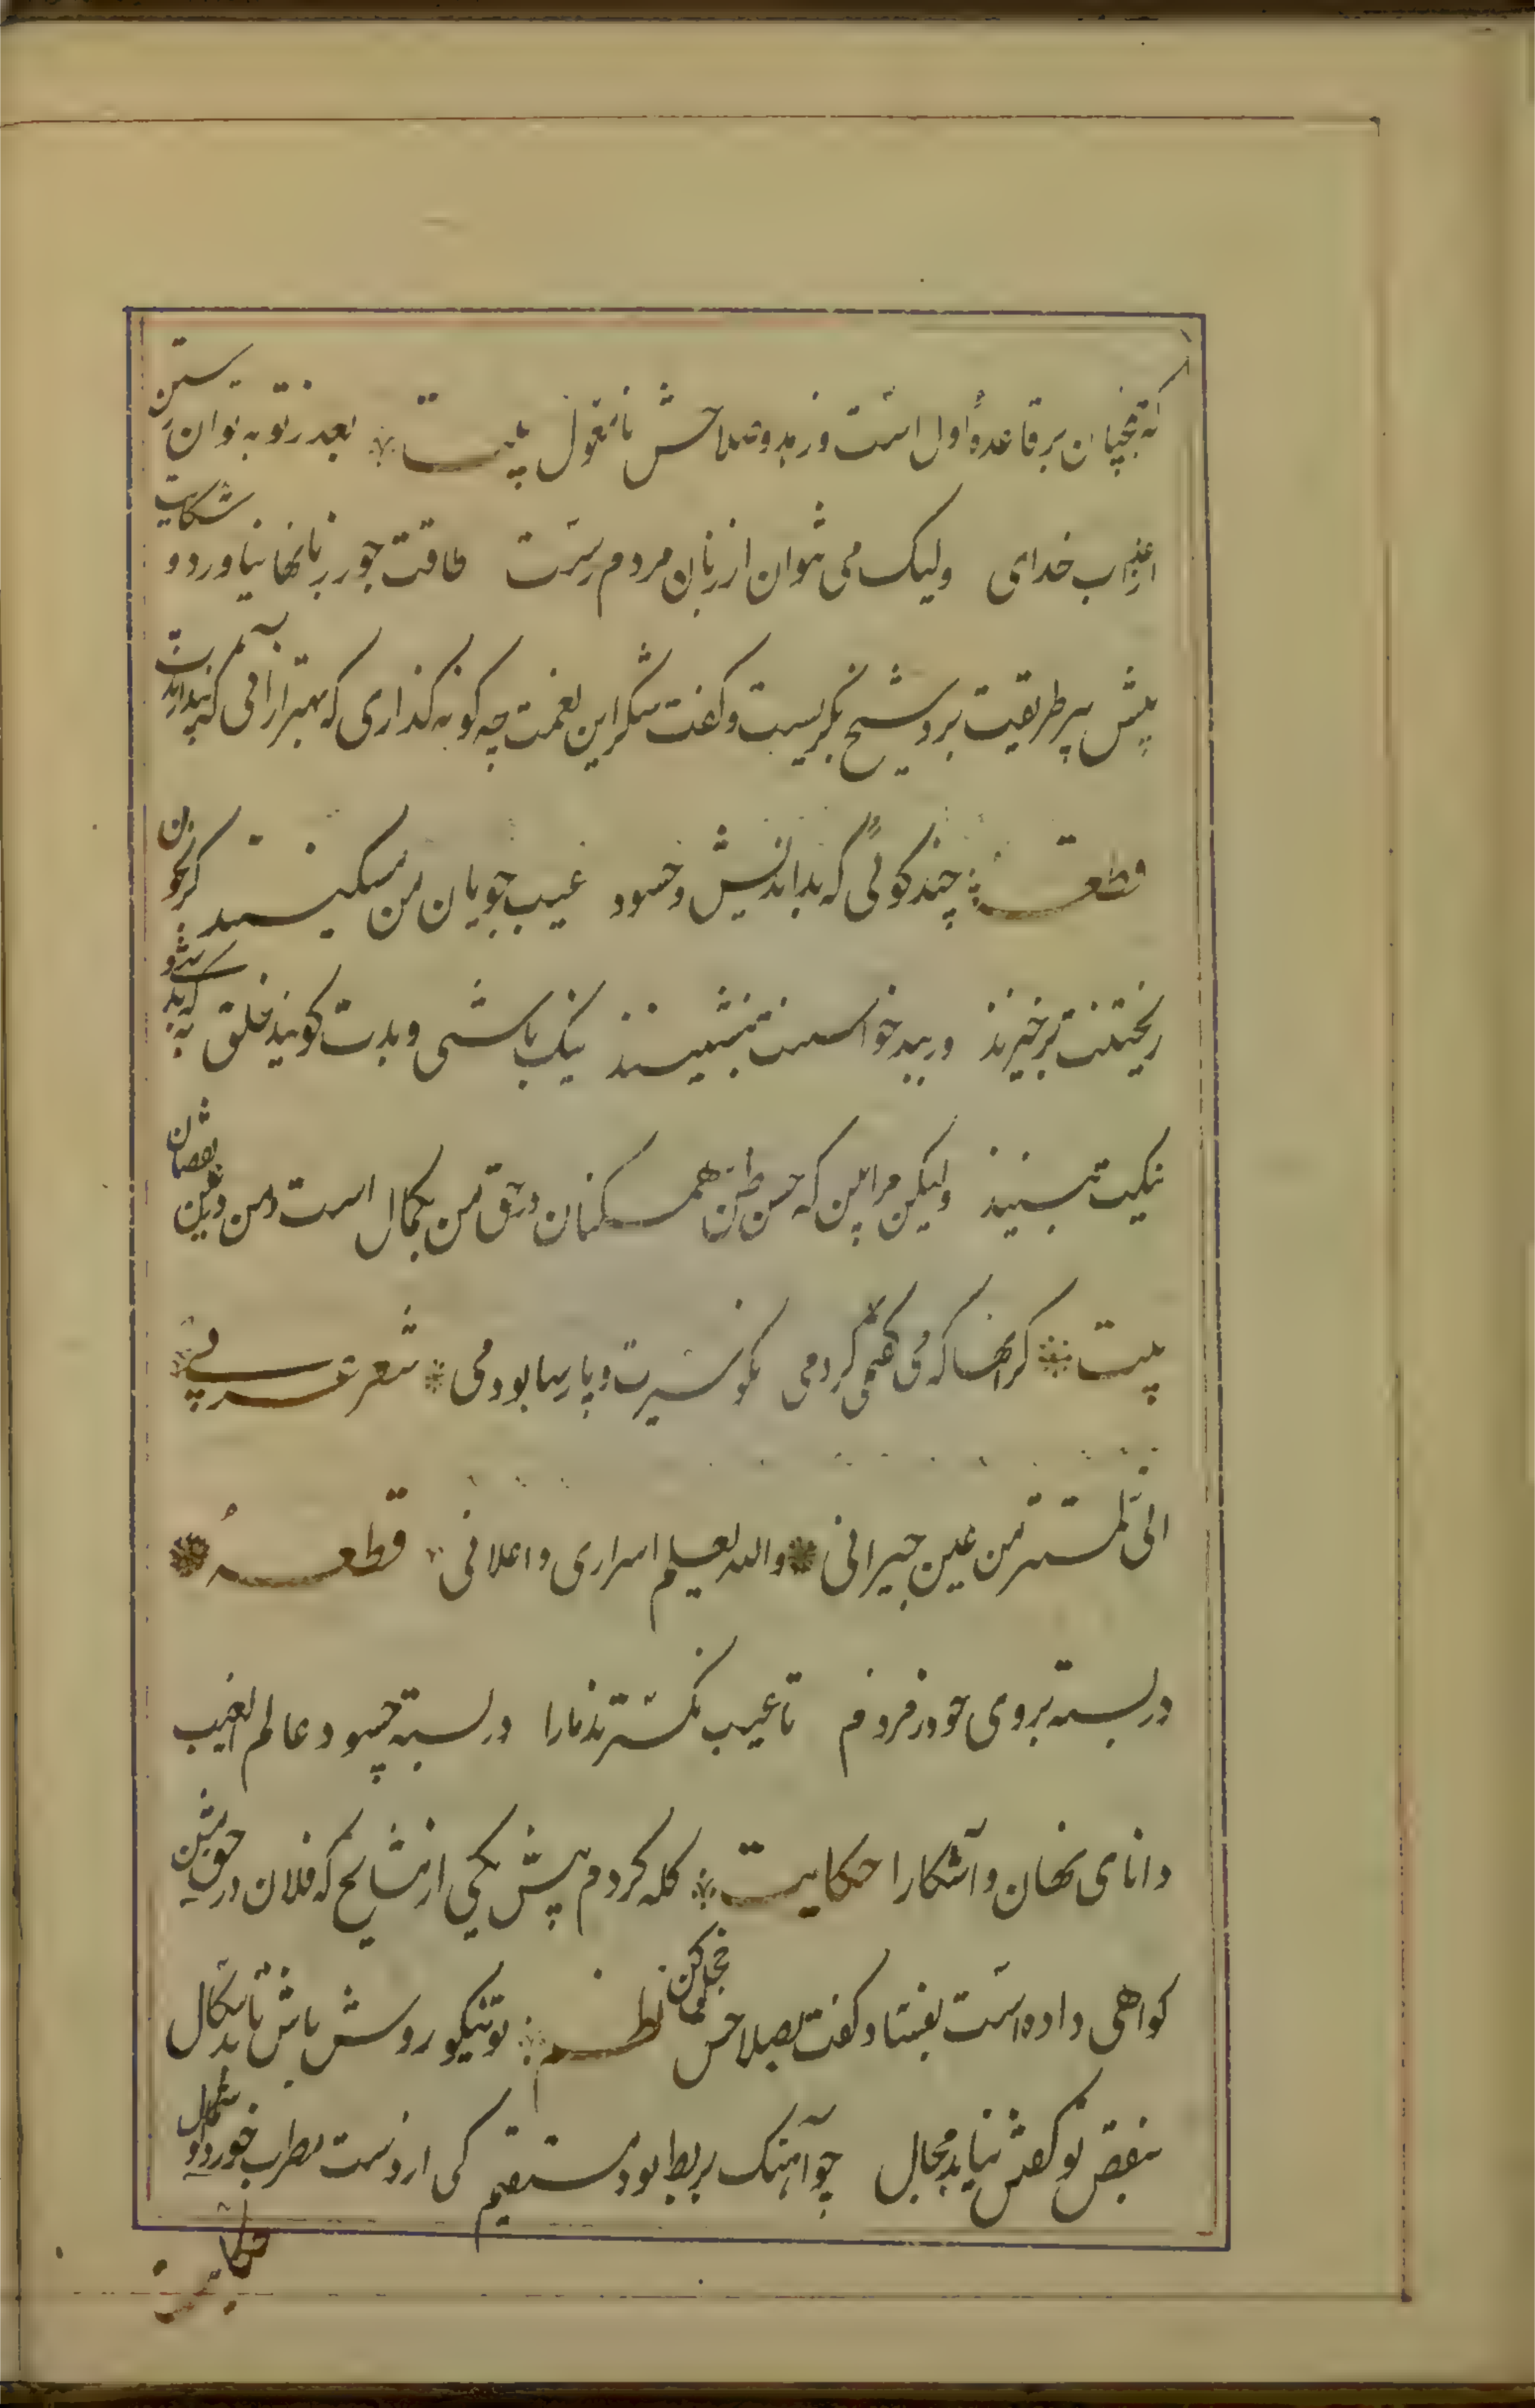 که همچنان بر قاعدهٔ اول است و زهد و صلاحش نامعول بیت بعذر توبه توان رستن
از عذاب خدای ولیک می نتوان از زبان مردم رست طاقت جور زبانها نیاورد و شکایت
پیش پیر طریقت برد شیخ بگریست و گفت شکر این نعمت چه گونه گذاری که بهتر از آنی که پندارندت
قطعه چند گوئی که بداندیش و حسود عیب جویان من مسکینند گر بخون
ریختنت برخیزند ور ببد خواستنت بنشینند نیک باشی و بدت گوید خلق به که بد
نیکت بینند ولیکن مرا بین که حسن ظن همکنان در حق من بکمال است و من در عین نقصان
بیت گر آنها که می گفتمی کردمی نکو سیرت و پارسا بودمی شعر عربی
انی لمستتر من عین جیرانی والله یعلم اسراری و اعلانی قطعه
در بسته بروی خود ز مردم تا عیب نگسترند ما را در بسته چسود عالم الغیب
دانای نهان و آشکارا حکایت گله کردم پیش یکی از مشایخ که فلان در حق من
گواهی داده است بفساد گفت بصلاحش خجل کن نظم تو نیکو روش باش تا بدسگال
بنقص تو گفتن نیابد مجال چو آهنگ بربط بود مستقیم کی از دست مطرب خورد گوشمال
حکایت